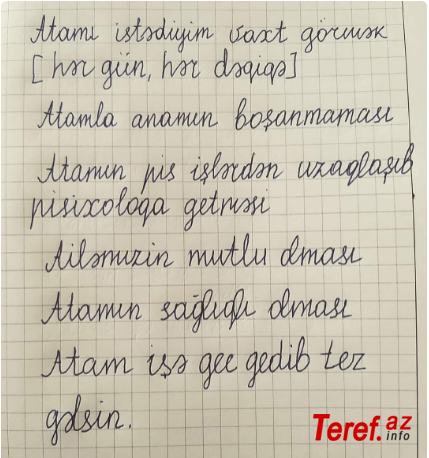 Atamı istədiyim vaxt görmək
[hər gün, hər dəqiqə]
Atamla anamın boşanmaması
Atamın pis işlərdən uzaqlaşıb
pisixoloqa getməsi
Ailəmizin mutlu olması
Atamın sağlığı olması
Atam işə gec gedib tez
gəlsin.
Teref.az
info